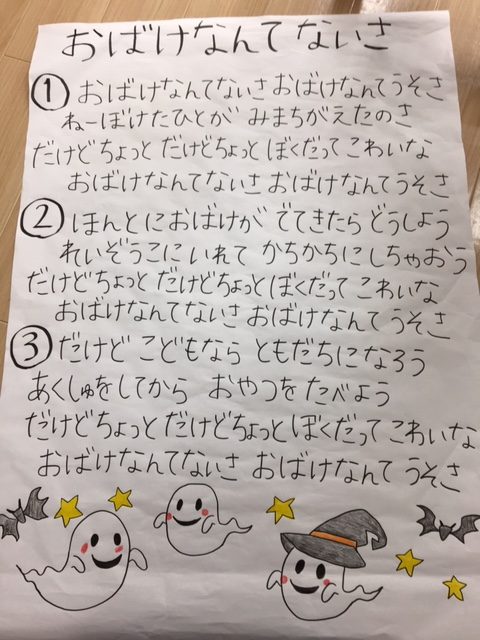 おばけなんてないさ
① おばけなんてないさ おばけなんてうそさ
ねーぼけたひとが みまちがえたのさ
だけどちょっと だけどちょっと ぼくだって こわいな
おばけなんてないさ おばけなんてうそさ
② ほんとにおばけが でてきたら どうしよう
れいぞうこに いれて かちかちにしちゃおう
だけどちょっと だけどちょっと ぼくだって こわいな
おばけなんてないさ おばけなんて うそさ
③ だけど こどもなら ともだちになろう
あくしゅをしてから おやつを たべよう
だけどちょっと だけどちょっと ぼくだって こわいな
おばけなんてないさ おばけなんて うそさ